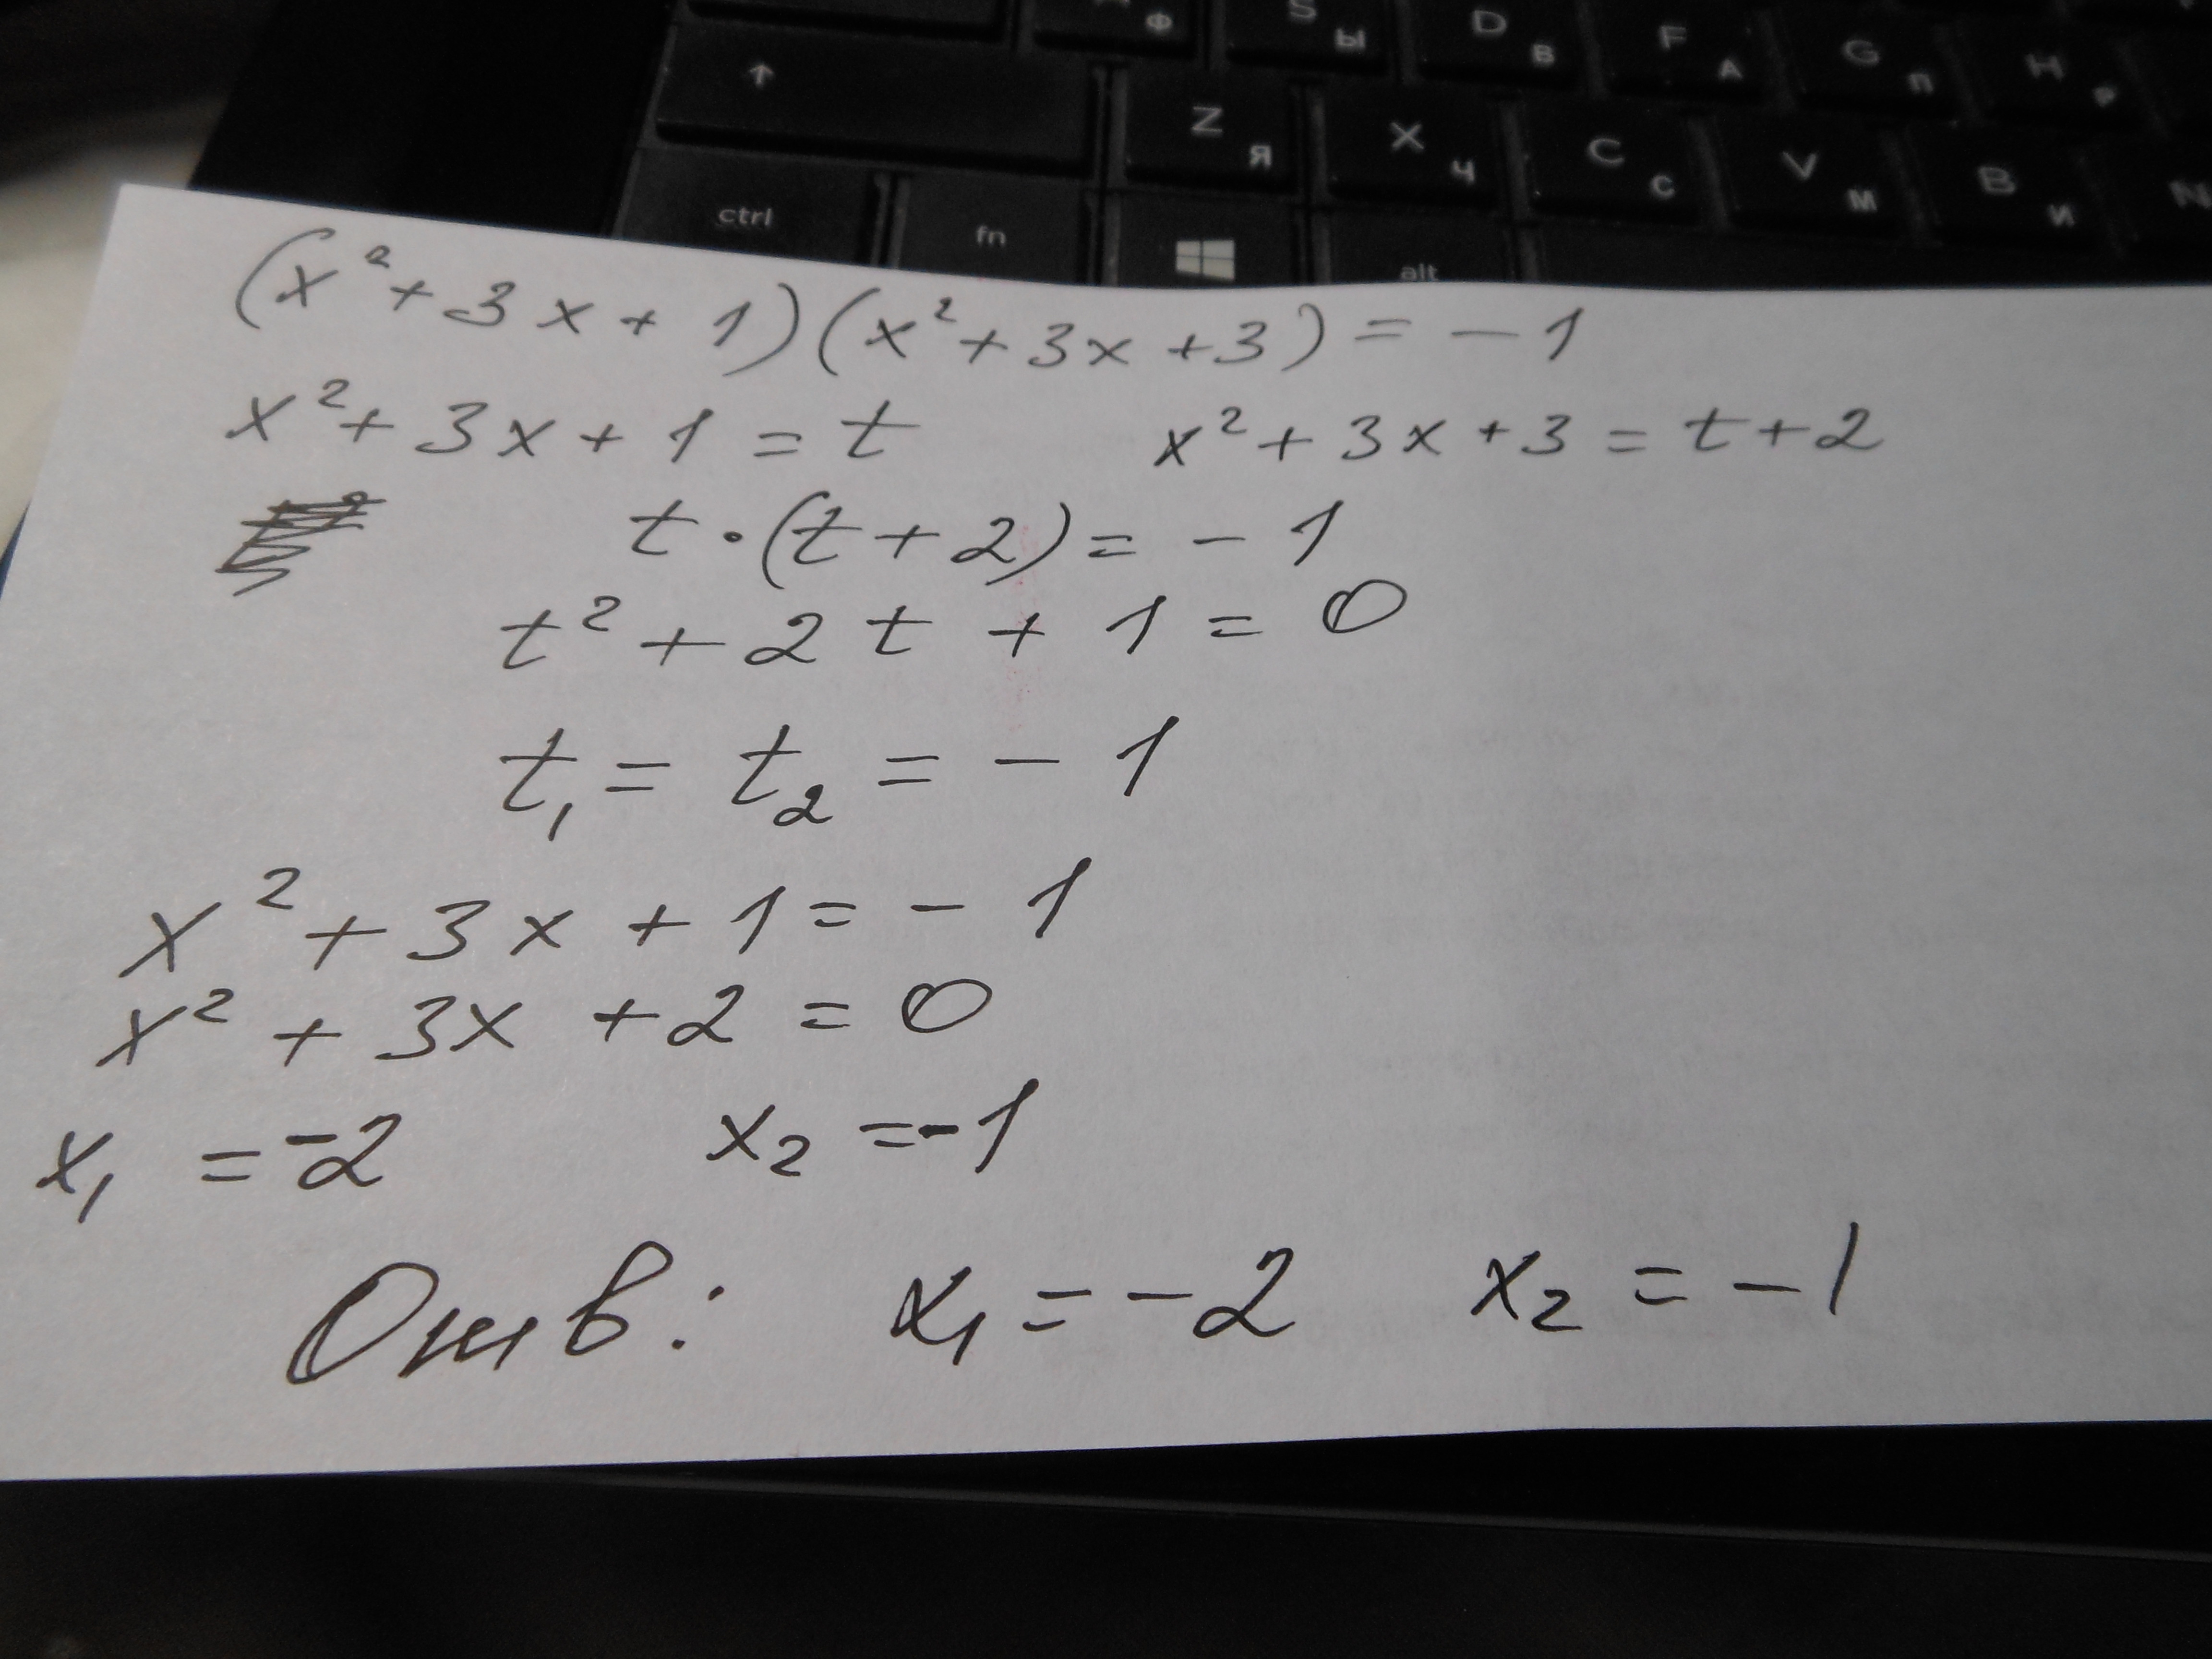 Ф S Ы D В F А G П H Р
↑ Z Я X Ч C С V М B И N
ctrl fn alt
(x²+3x+1)(x²+3x+3)=-1
x²+3x+1=t x²+3x+3=t+2
t·(t+2)=-1
t²+2t+1=0
t₁=t₂=-1
x²+3x+1=-1
x²+3x+2=0
x₁=-2 x₂=-1
Отв: x₁=-2 x₂=-1